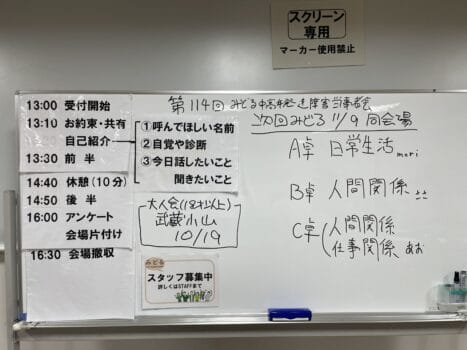 スクリーン
専用
マーカー使用禁止
第114回 みどる中高年発達障害当事者会
次回みどる 11/9 同会場
13:00 受付開始
13:10 お約束・共有
自己紹介
13:30 前 半
14:40 休憩(10分)
14:50 後 半
16:00 アンケート
会場片付け
16:30 会場撤収
①呼んでほしい名前
②自覚や診断
③今日話したいこと
聞きたいこと
大人会(18才以上)
武蔵小山
10/19
みどる
スタッフ募集中
詳しくはSTAFFまで
A卓 日常生活 mori
B卓 人間関係
C卓 人間関係
仕事関係 あお